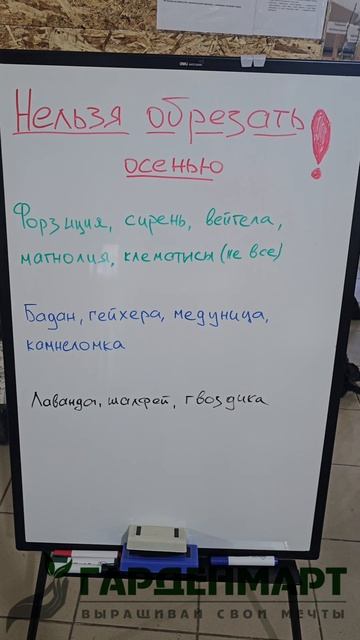 Нельзя обрезать!
осенью
Форзиция, сирень, вейгела,
магнолия, клематисы (не все)
Бадан, гейхера, медуница,
камнеломка
Лаванда, шалфей, гвоздика
ГАРДЕНМАРТ
ВЫРАЩИВАЙ СВОИ МЕЧТЫ